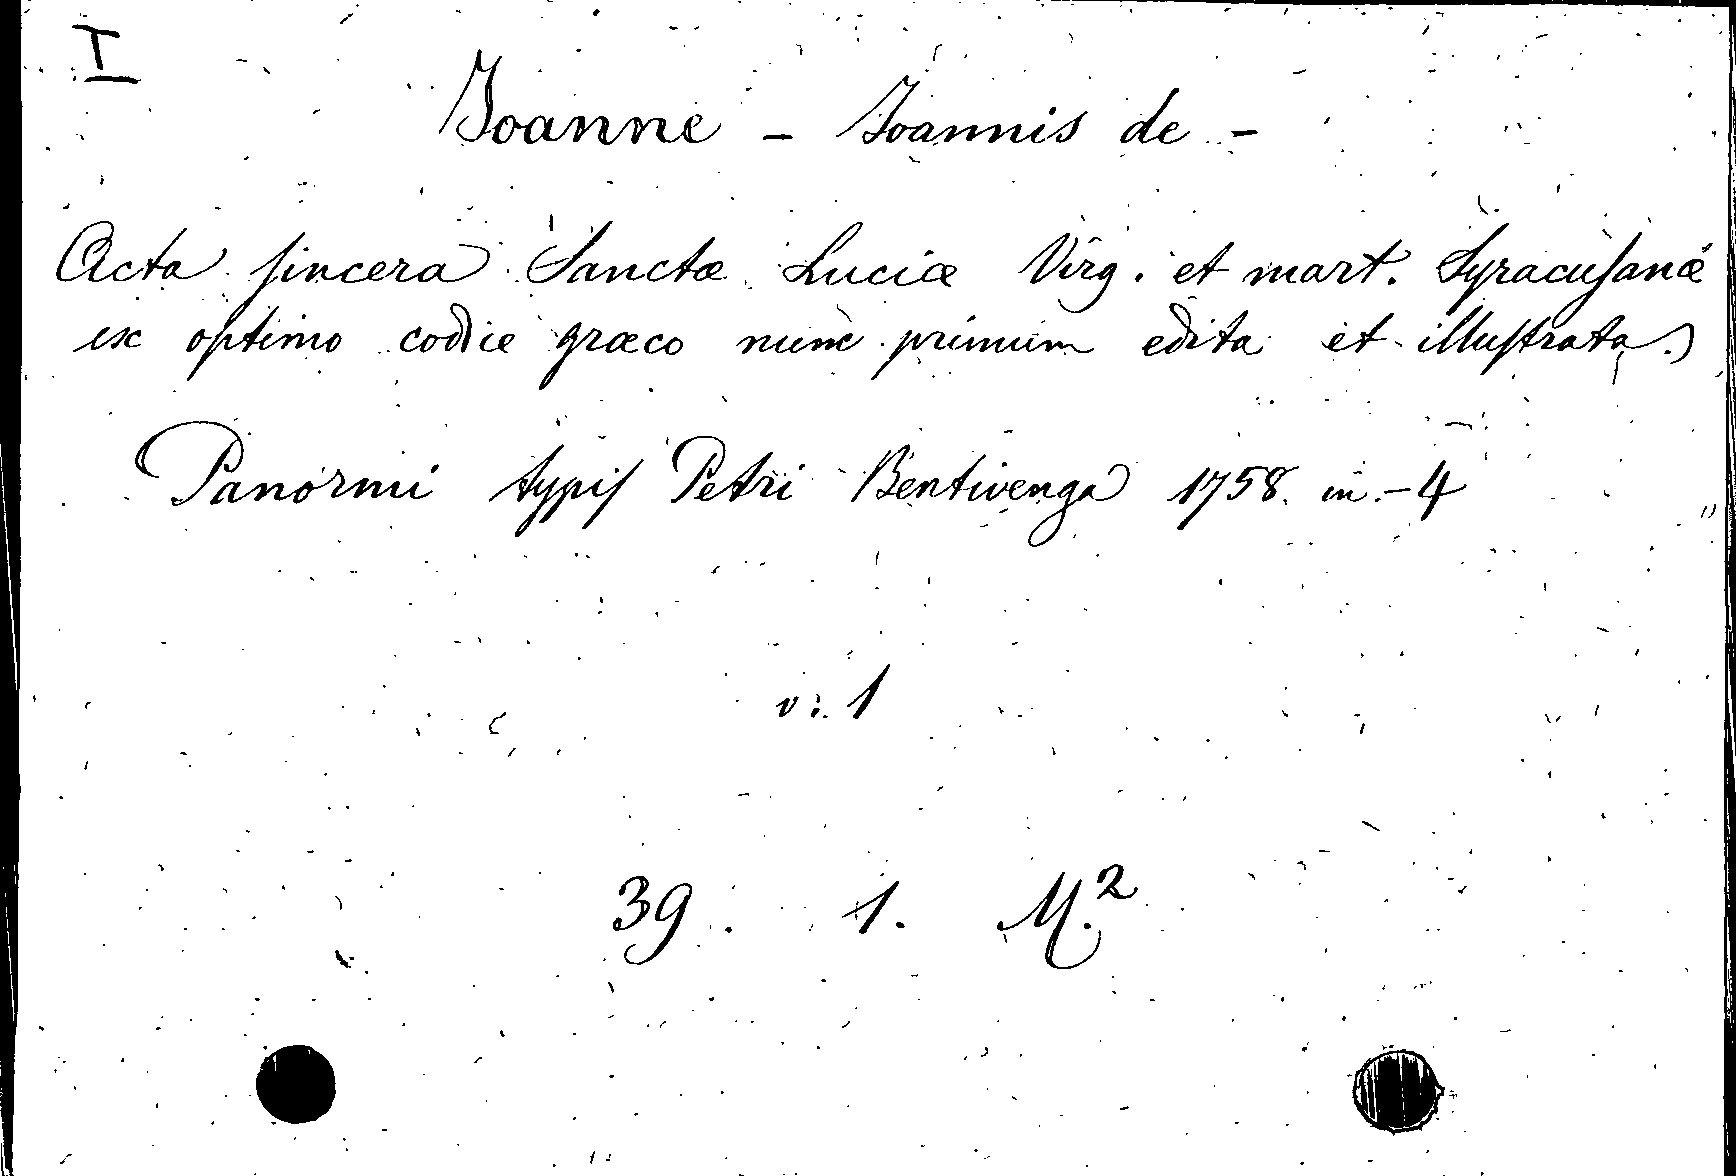 I
Joanne - Joannis de -
Acta sincera Sanctæ Luciæ Virg. et mart. Syracusanæ
ex optimo codice græco nunc primum edita et illustrata.
Panormi typis Petri Bentivenga 1758. in-4
v. 1
39. 1. M.²